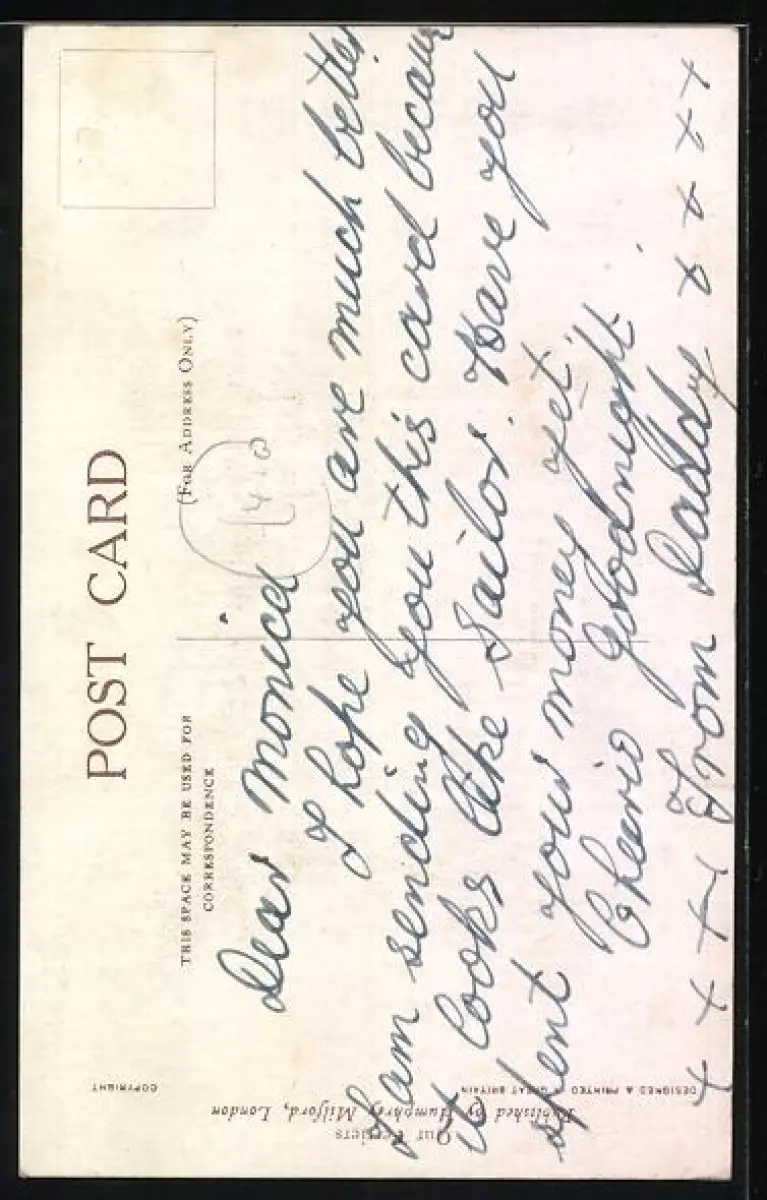 POST CARD
THIS SPACE MAY BE USED FOR
CORRESPONDENCE
(FOR ADDRESS ONLY)
Dear Monica
I hope you are much better
I am sending you this card because
it looks like Sailor. Have you
spent your money yet.
Cheerio Goodnight
From Daddy
x x x x x x x
COPYRIGHT
Our Terriers
Published by Humphrey Milford, London
DESIGNED & PRINTED IN GREAT BRITAIN